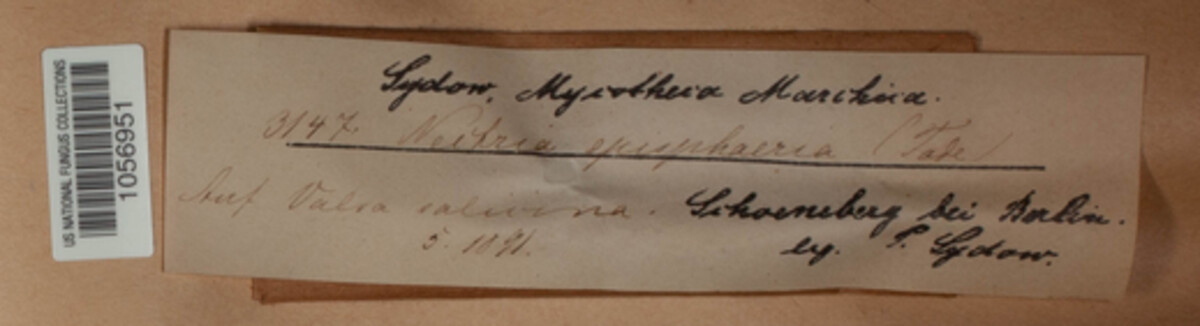 US NATIONAL FUNGUS COLLECTIONS
1056951
Sydow, Mycotheca Marchica.
3147. Nectria episphaeria (Tode)
Auf Valsa salicina. Schoeneberg bei Berlin.
5. 1891. lg. P. Sydow.